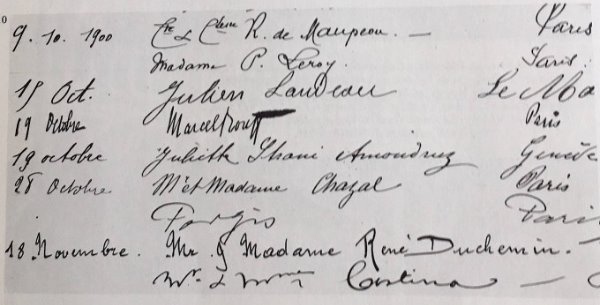 9. 10. 1900 Cte & Ctesse R. de Maupeou. — Paris
Madame P. Leroy. Paris.
15 Oct. Julien Landeau Le Ma
19 Octobre Marcel Paris
19 octobre Juliette Amoudruz Genève
28 Octobre Mr et Madame Chazal Paris
Pari
18. Novembre. Mr & Madame René Duchemin.
Mr & Mme